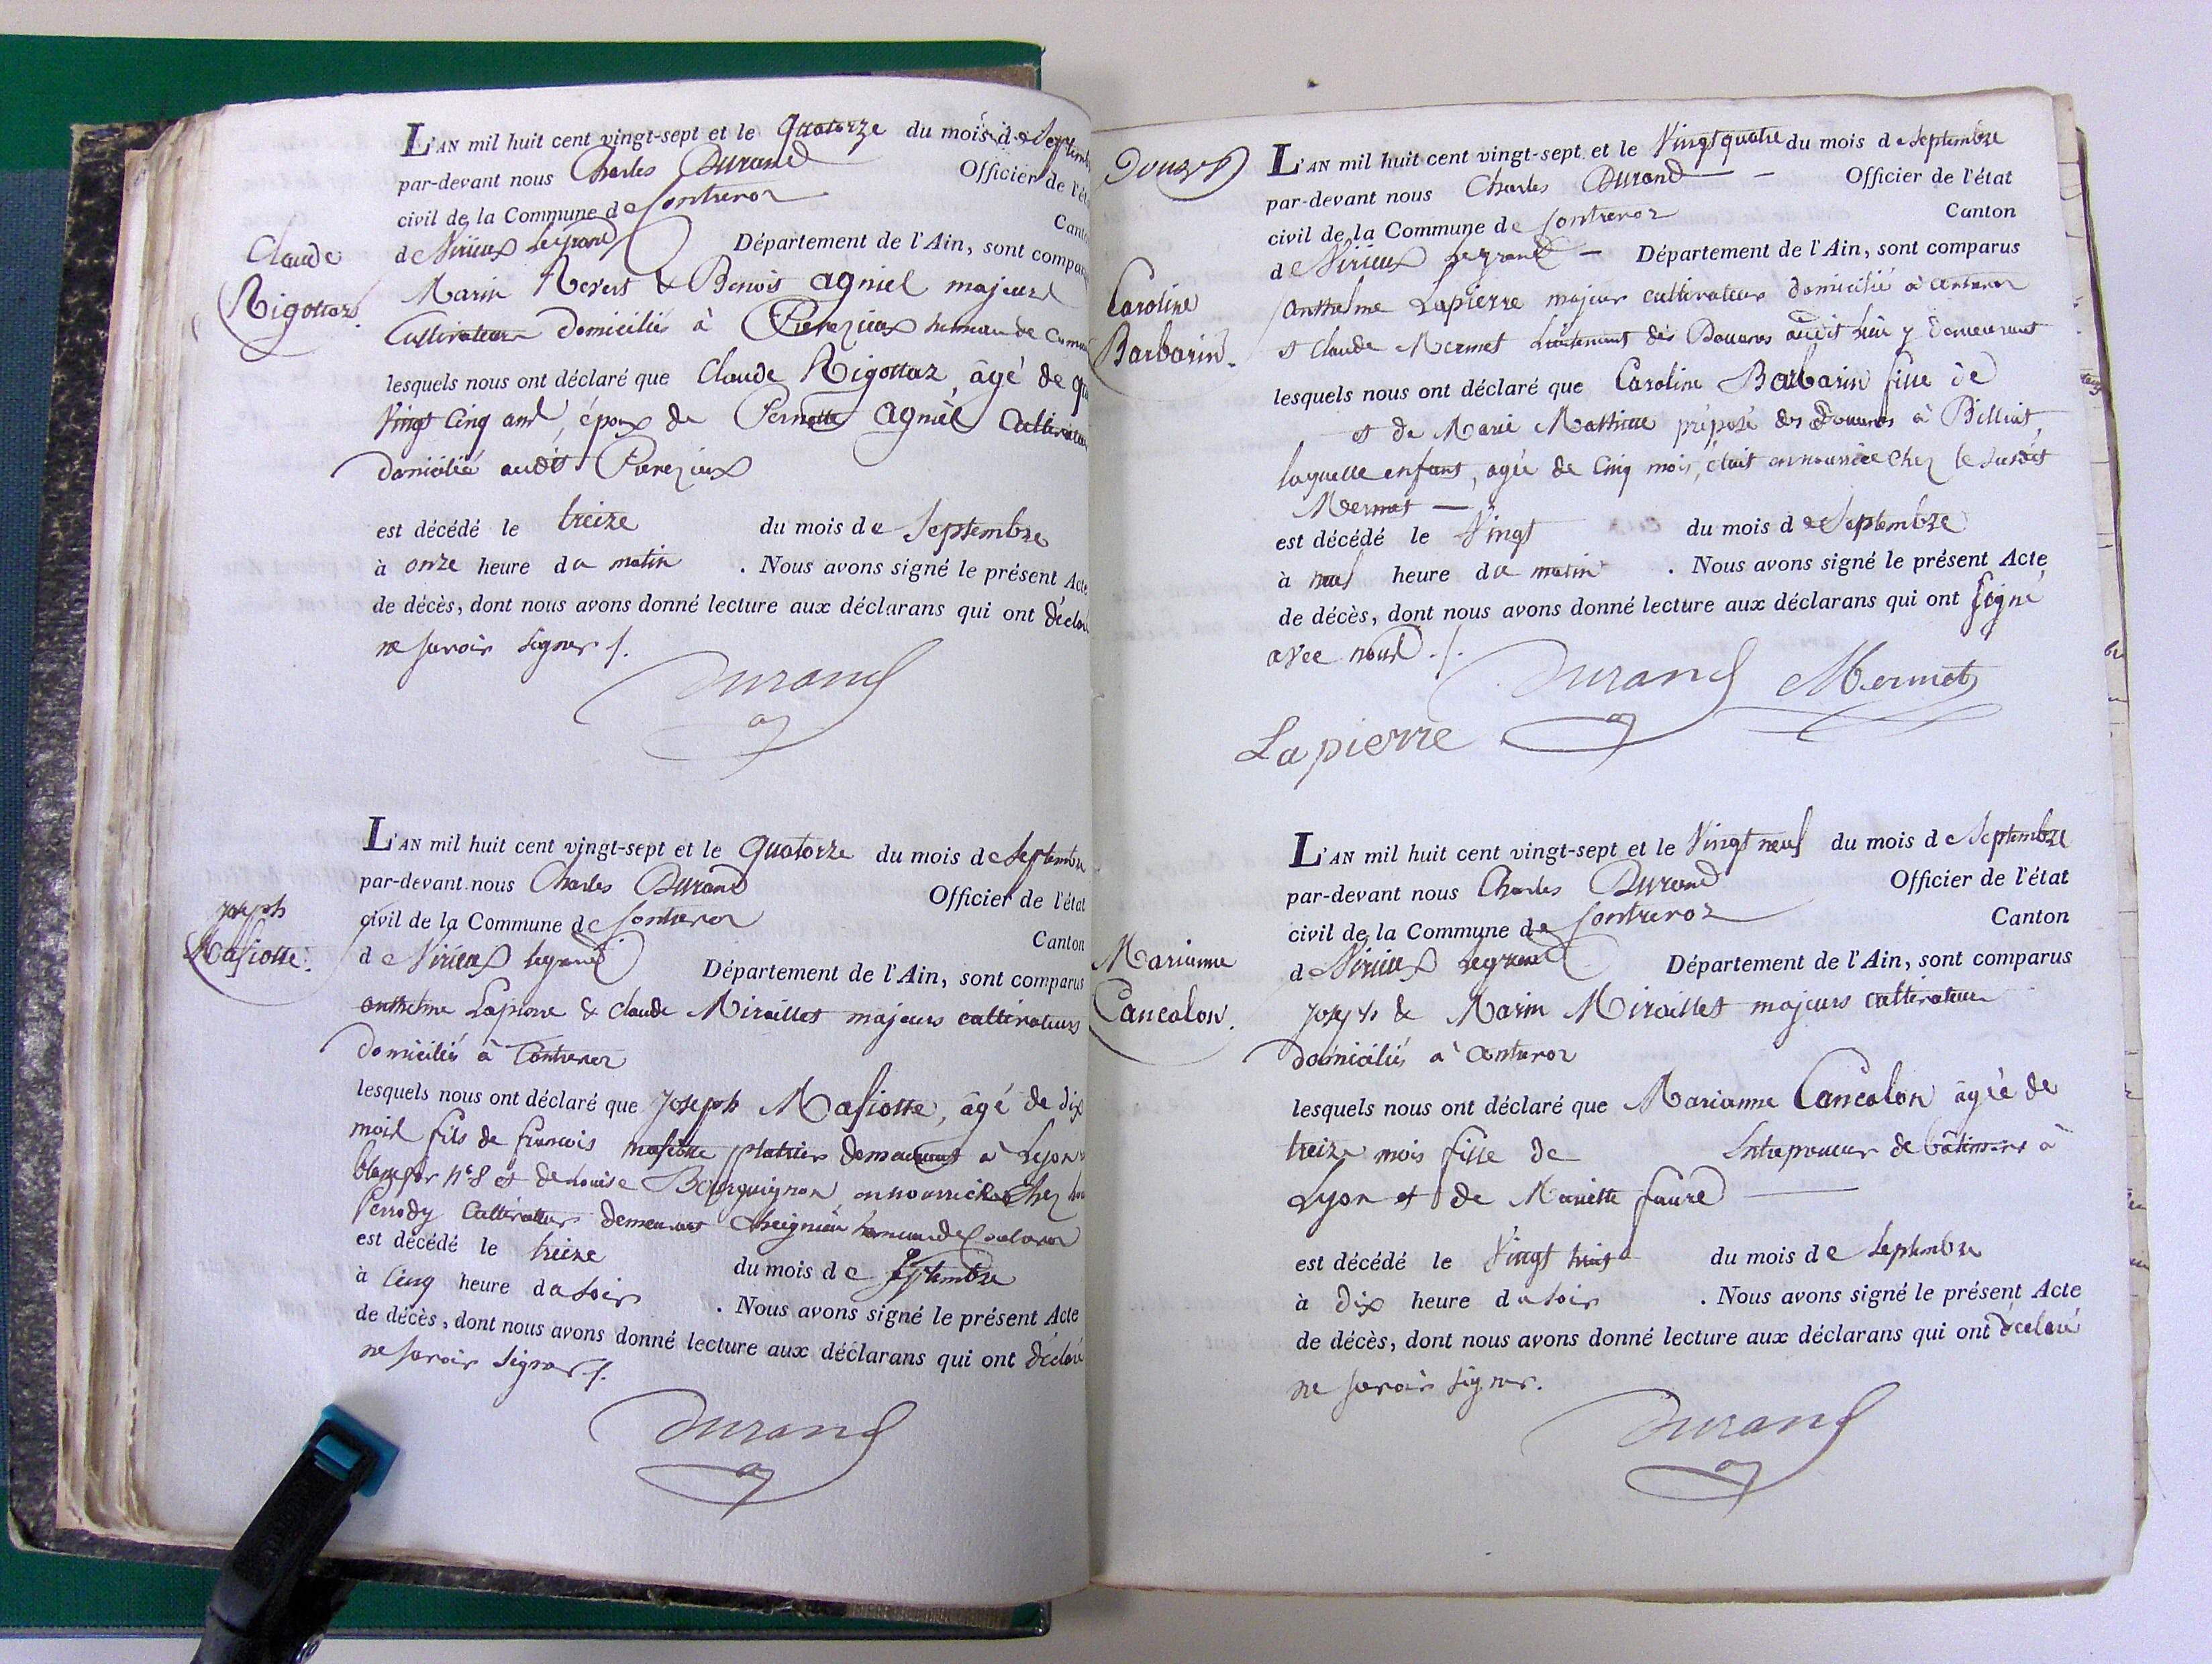 L'AN mil huit cent vingt-sept et le quatorze du mois de Septemb
par-devant nous Charles Durand Officier de l'éta
civil de la Commune de Contrevoz Canto
de Virieux Legrand Département de l'Ain, sont compar
Claude
Rigottaz.
Marin Revert & Benoit Agniel majeurs
Cultivateurs domiciliés à hameau de
lesquels nous ont déclaré que Claude Rigottaz, âgé de qu
Vingt Cinq ans, époux de Pernette Agniel Cultivateur
domicilié audit
est décédé le treize du mois de Septembre
à onze heure du matin . Nous avons signé le présent Acte
de décès, dont nous avons donné lecture aux déclarans qui ont déclar
ne savoir signer /.
Durand
L'AN mil huit cent vingt-sept et le quatorze du mois de Septembre
par-devant nous Charles Durand Officier de l'état
civil de la Commune de Contrevoz Canton
de Virieux legrand Département de l'Ain, sont comparus
Joseph
Masiotte.
anthelme Lapierre & Claude Miraillet majeurs cultivateurs
domiciliés à Contrevoz
lesquels nous ont déclaré que Joseph Masiotte, âgé de dix
mois fils de francois masiotte platrier demeurant à Lyon
n° 8 et de Louise Bourguignon en nourrice chez
Perrody Cultivateur demeurant Cheignieu hameau de Contrevoz
est décédé le treize du mois de Septembre
à Cinq heure du soir . Nous avons signé le présent Acte
de décès, dont nous avons donné lecture aux déclarans qui ont déclaré
ne savoir signer /.
Durand
L'AN mil huit cent vingt-sept et le Vingt quatre du mois de Septembre
par-devant nous Charles Durand Officier de l'état
civil de la Commune de Contrevoz Canton
de Virieux Legrand Département de l'Ain, sont comparus
Caroline
Barbarin.
Anthelme Lapierre majeur cultivateur domicilié à Contrevoz
et Claude Mermet Lieutenant des Douanes audit lieu y demeurant
lesquels nous ont déclaré que Caroline Barbarin fille de
et de Marie Mathieu préposé des Douanes à Billiat,
laquelle enfant, agée de Cinq mois, était en nourrice chez le susdit
Mermet
est décédé le Vingt du mois de Septembre
à neuf heure du matin . Nous avons signé le présent Acte
de décès, dont nous avons donné lecture aux déclarans qui ont signé
avec nous ./.
Durand Mermet
Lapierre
L'AN mil huit cent vingt-sept et le Vingt neuf du mois de Septembre
par-devant nous Charles Durand Officier de l'état
civil de la Commune de Contrevoz Canton
de Virieux Legrand Département de l'Ain, sont comparus
Marianne
Cancalon.
Joseph & Marin Miraillet majeurs cultivateurs
domiciliés à Contrevoz
lesquels nous ont déclaré que Marianne Cancalon âgée de
treize mois fille de Entrepreneur de bâtiments à
Lyon et de Mariette faure
est décédé le Vingt huit du mois de Septembre
à dix heure du soir . Nous avons signé le présent Acte
de décès, dont nous avons donné lecture aux déclarans qui ont déclaré
ne savoir signer.
Durand